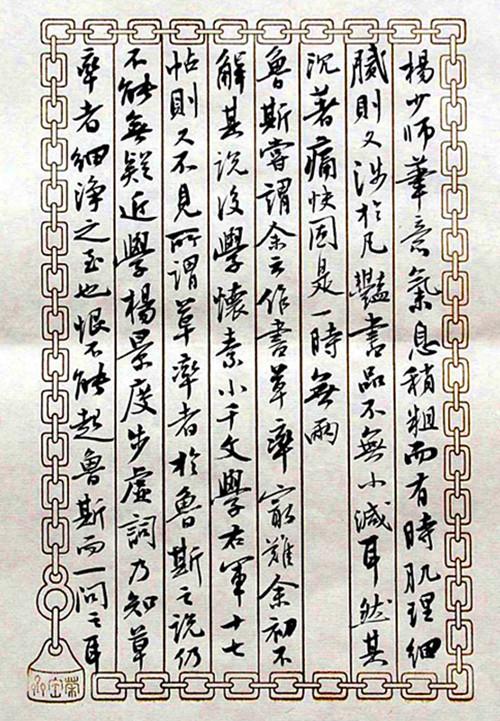 楊少師筆意氣息稍粗而有時肌理細
膩則又涉於凡豔書品不無小減耳然其
沉著痛快固是一時無兩
魯斯嘗謂余云作書草率最難余初不
解其說後學懷素小千文學右軍十七
帖則又不見所謂草率者於魯斯之說仍
不能無疑近學楊景度步虛詞乃知草
率者細淨之至也恨不能起魯斯而一問之耳